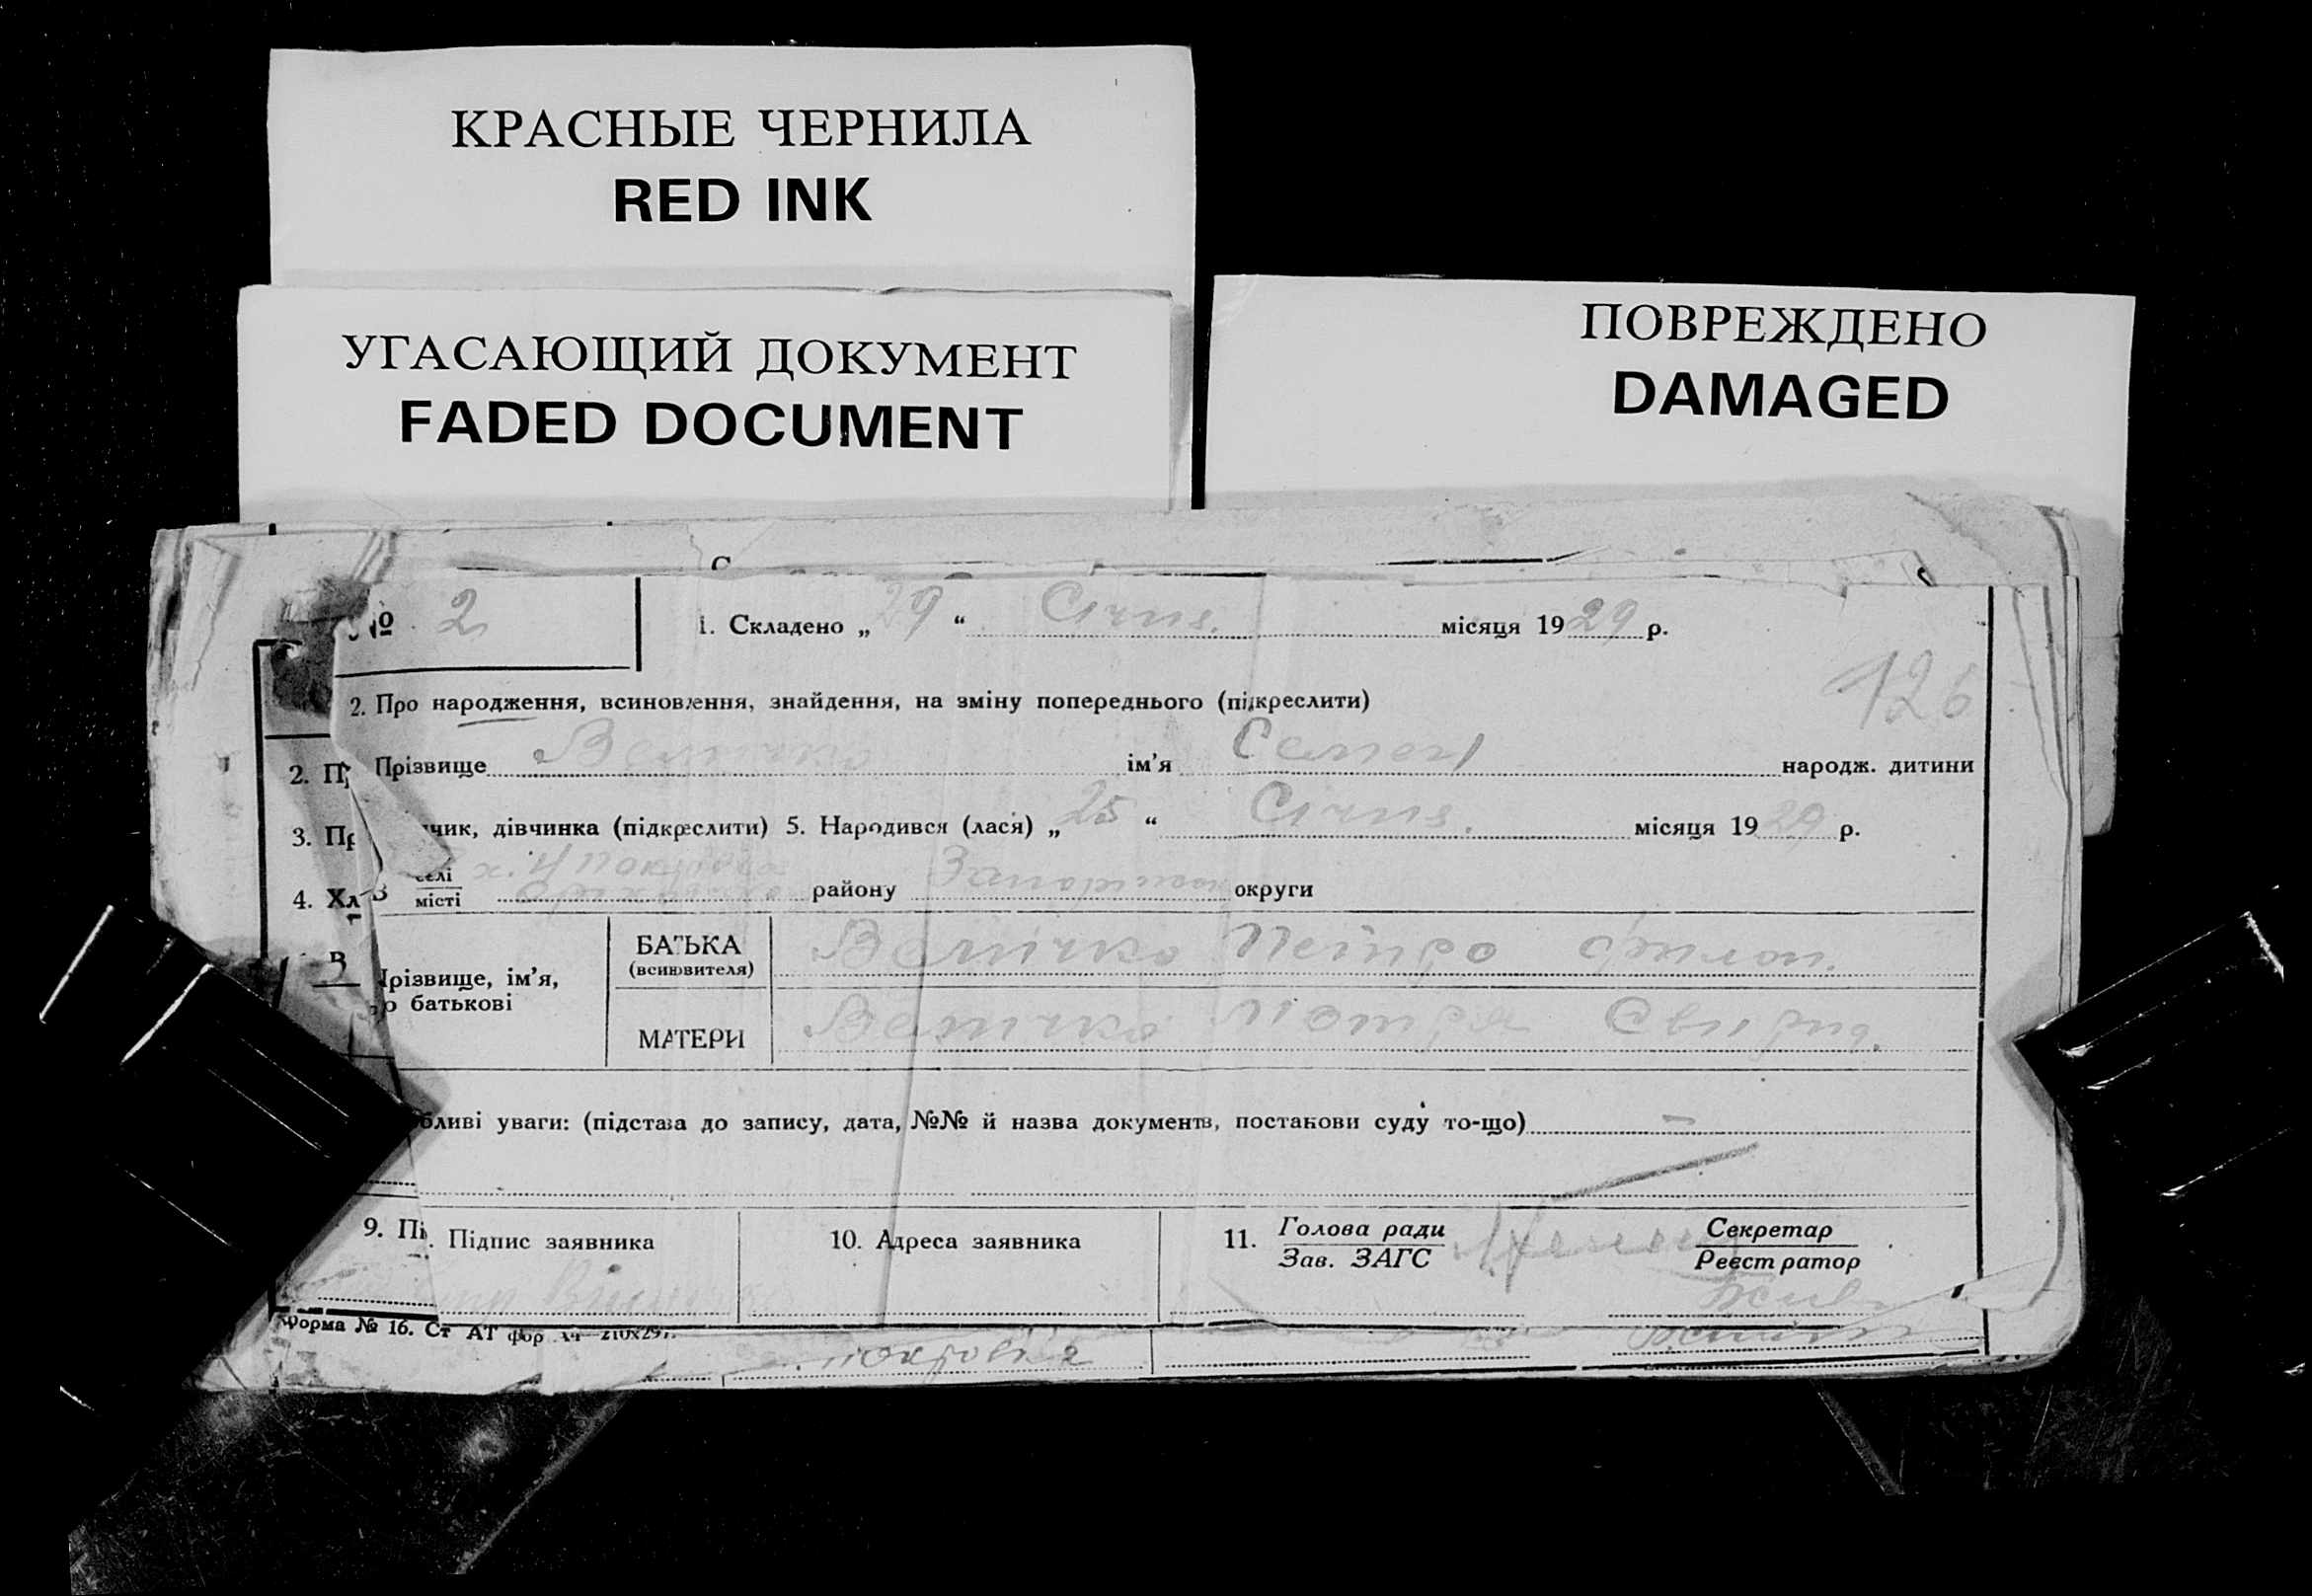 КРАСНЫЕ ЧЕРНИЛА
RED INK
УГАСАЮЩИЙ ДОКУМЕНТ
FADED DOCUMENT
ПОВРЕЖДЕНО
DAMAGED
№ 2
1. Складено „ 29 “ Січня. місяця 1929 р.
126
2. Про народження, всиновлення, знайдення, на зміну попереднього (підкреслити)
2. П Прізвище Величко ім’я Семен народж. дитини
3. Пр чик, дівчинка (підкреслити) 5. Народився (лася) „ 25 “ Січня. місяця 1929 р.
4. Хл В селі х. Н Покровка
місті району округи
В Прізвище, ім’я,
по батькові
БАТЬКА
(всиновителя)
Величко Петро Филон.
МАТЕРИ Величко Мотря Свирид.
бливі уваги: (підстава до запису, дата, №№ й назва документів, постанови суду то-що) —
9. Пі . Підпис заявника 10. Адреса заявника 11. Голова ради
Зав. ЗАГС
Секретар
Реєстратор
Форма № 16. Ст АТ фор 210х297.
покровка